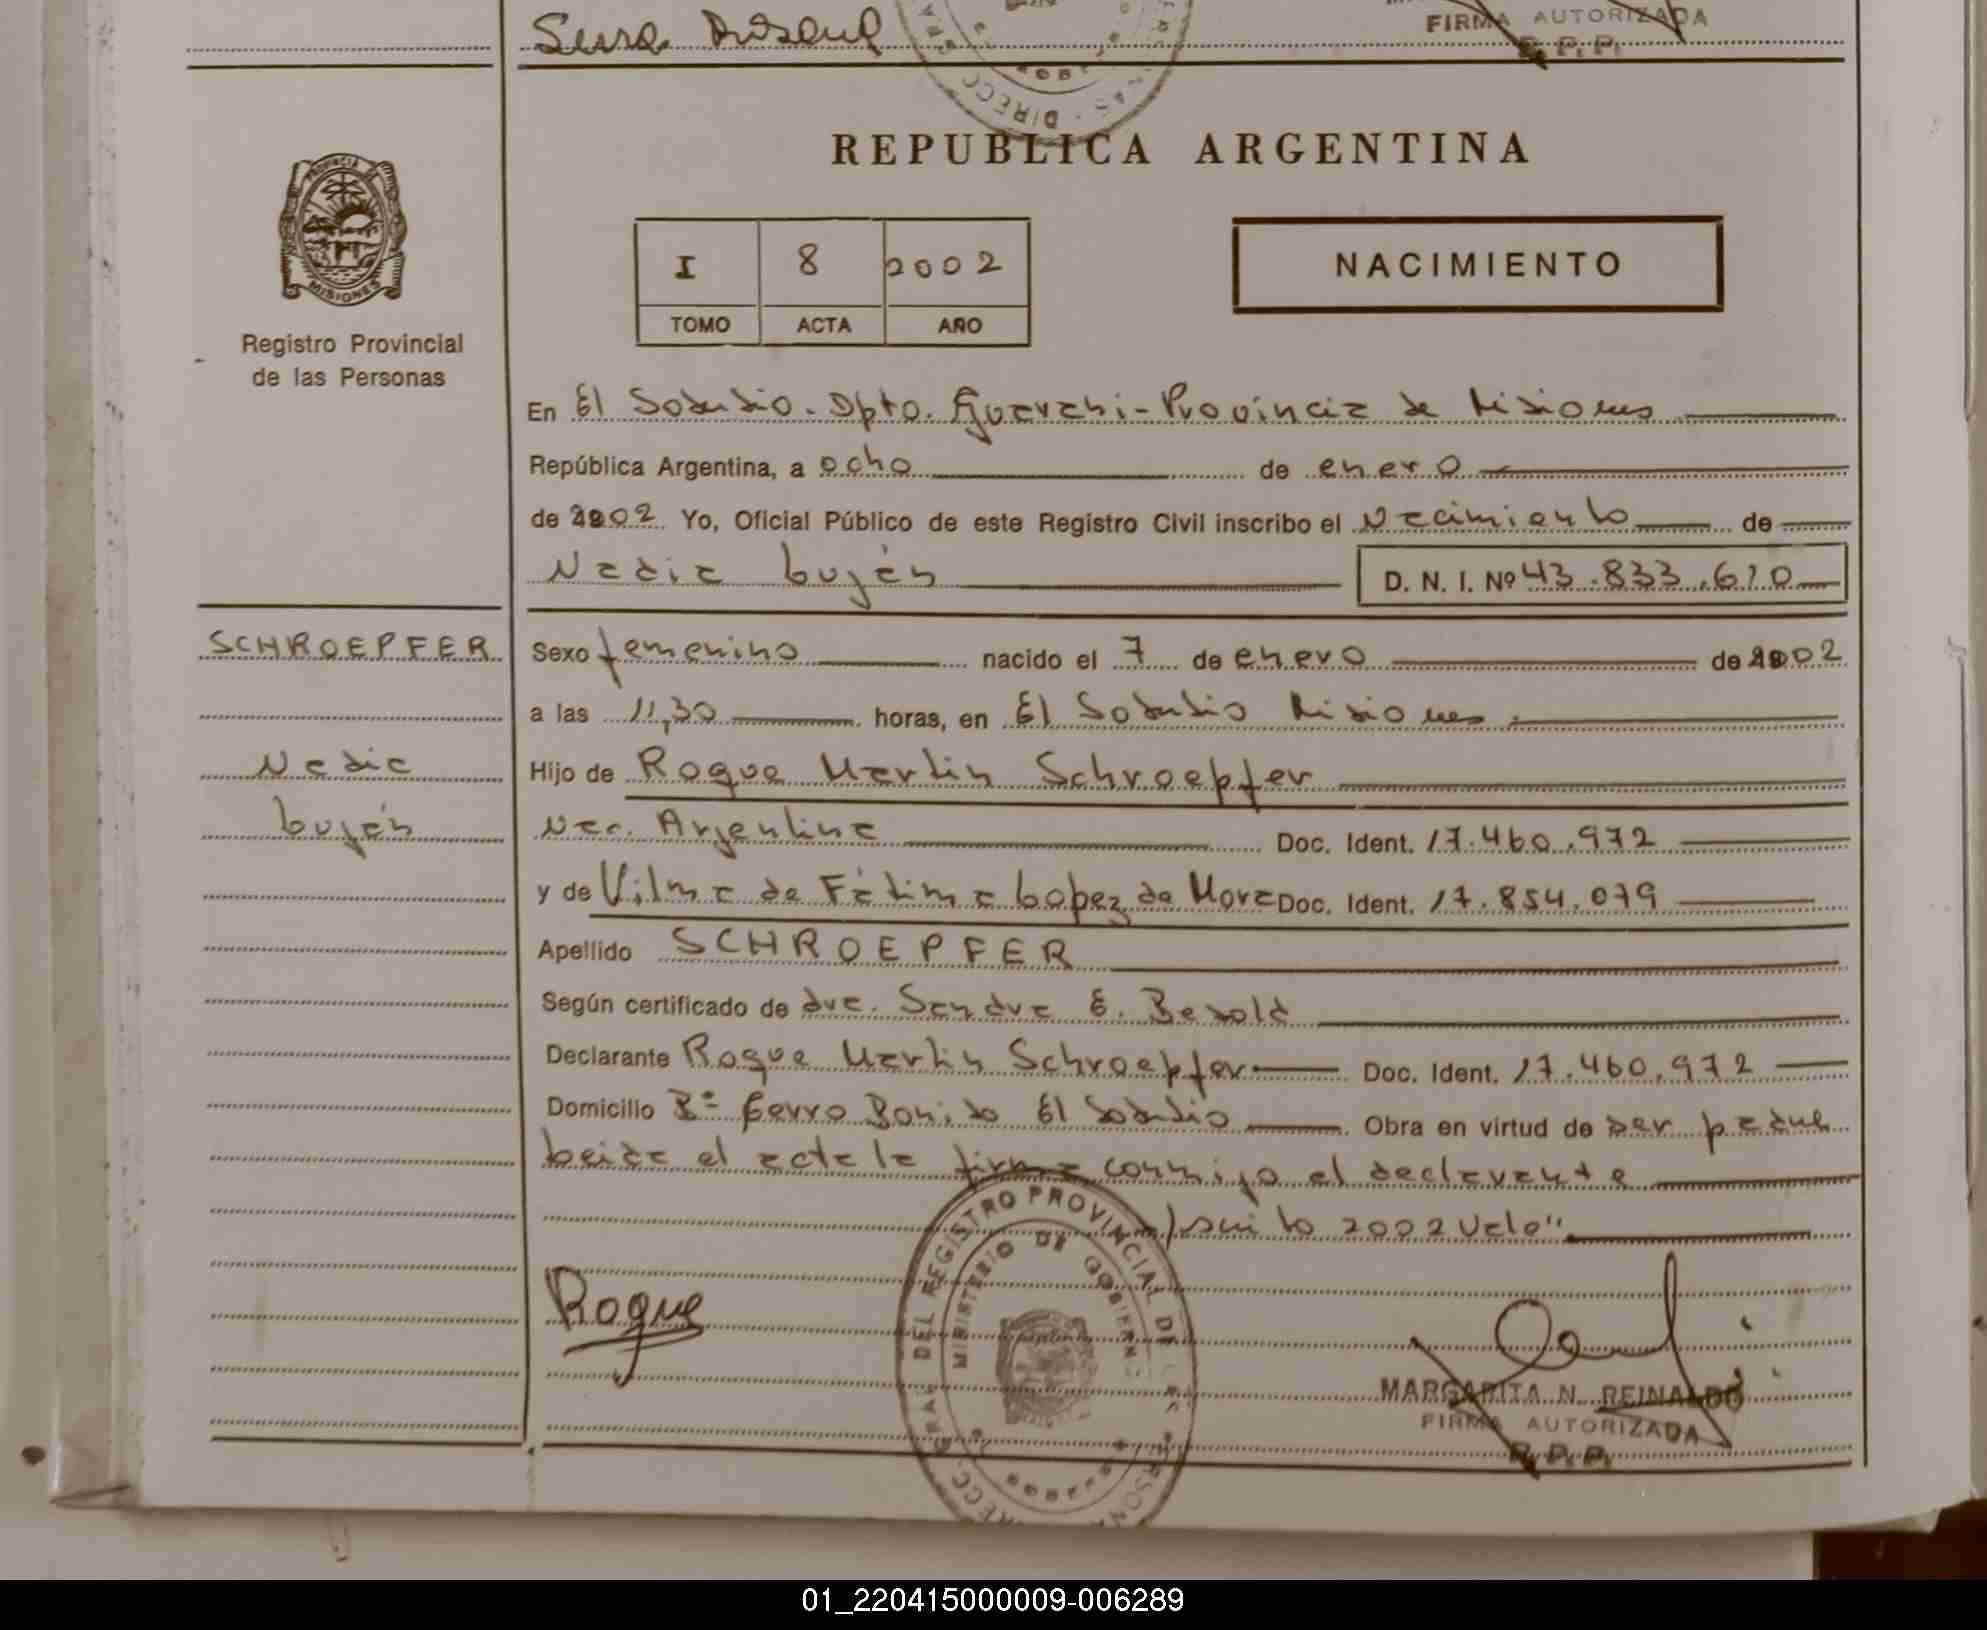 FIRMA AUTORIZADA
R. P. P.
REPUBLICA ARGENTINA
PROVINCIA DE
MISIONES
Registro Provincial
de las Personas
I 8 2002
TOMO ACTA AÑO
NACIMIENTO
En El Soberbio - Dpto. Guarani - Provincia de Misiones
República Argentina, a ocho de enero
de 2002 Yo, Oficial Público de este Registro Civil inscribo el Nacimiento de
Nadia Luján D. N. I. Nº 43.833.610
SCHROEPFER
Nadia
Luján
Sexo femenino nacido el 7 de enero de 2002
a las 11,30 horas, en El Soberbio Misiones
Hijo de Roque Martin Schroepfer
Nac. Argentina Doc. Ident. 17.460.972
y de Vilma de Fátima Lopez da Mora Doc. Ident. 17.854.079
Apellido SCHROEPFER
Según certificado de dra. Sandra E. Bezold
Declarante Roque Martin Schroepfer Doc. Ident. 17.460.972
Domicilio Bº Cerro Bonito El Soberbio Obra en virtud de ser padre
Leida el acta la firma conmigo el declarante
2002 Vale"
Roque
DIRECC. GRAL. DEL REGISTRO PROVINCIAL DE LAS PERSONAS
MINISTERIO DE GOBIERNO
MARGARITA N. REINALDO
FIRMA AUTORIZADA
R. P. P.
01_220415000009-006289